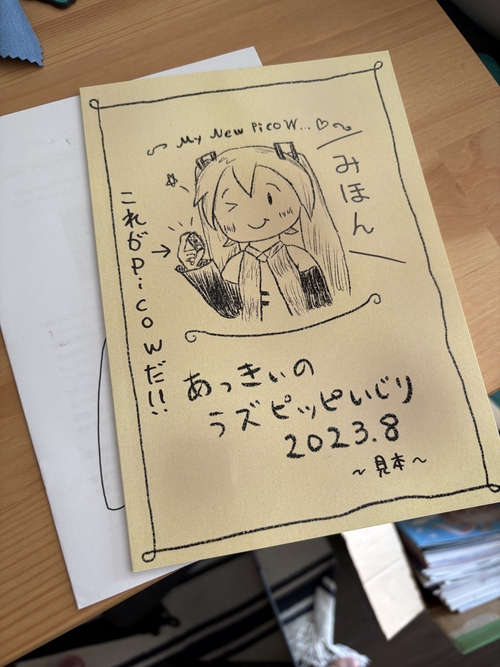 My New PicoW...♡
みほん
これがPicoWだ!!
あっきぃの
ラズピッピいじり
2023.8
～見本～